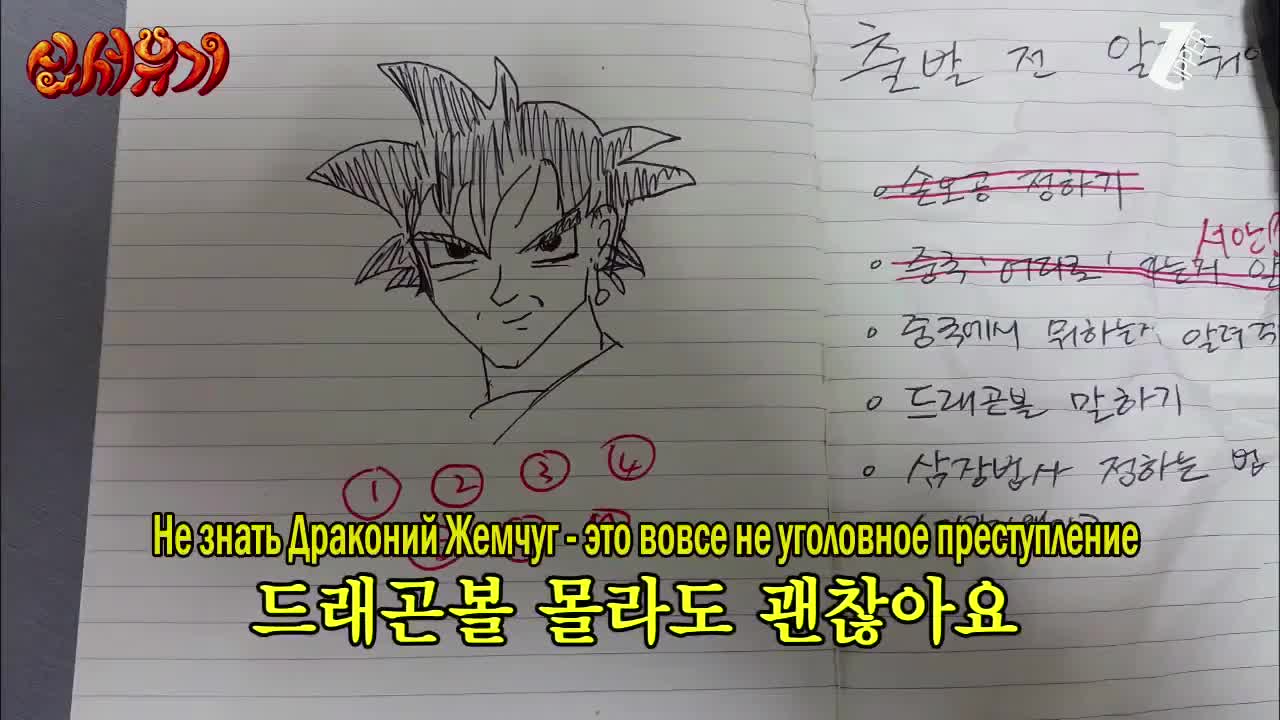 신서유기
ZIPPER
출발 전
손오공 정하기
서안
중국 '어디로' 가는지
중국에서 뭐하는지 알려주
드래곤볼 말하기
삼장법사 정하는 법
① ② ③ ④
Не знать Драконий Жемчуг - это вовсе не уголовное преступление
드래곤볼 몰라도 괜찮아요